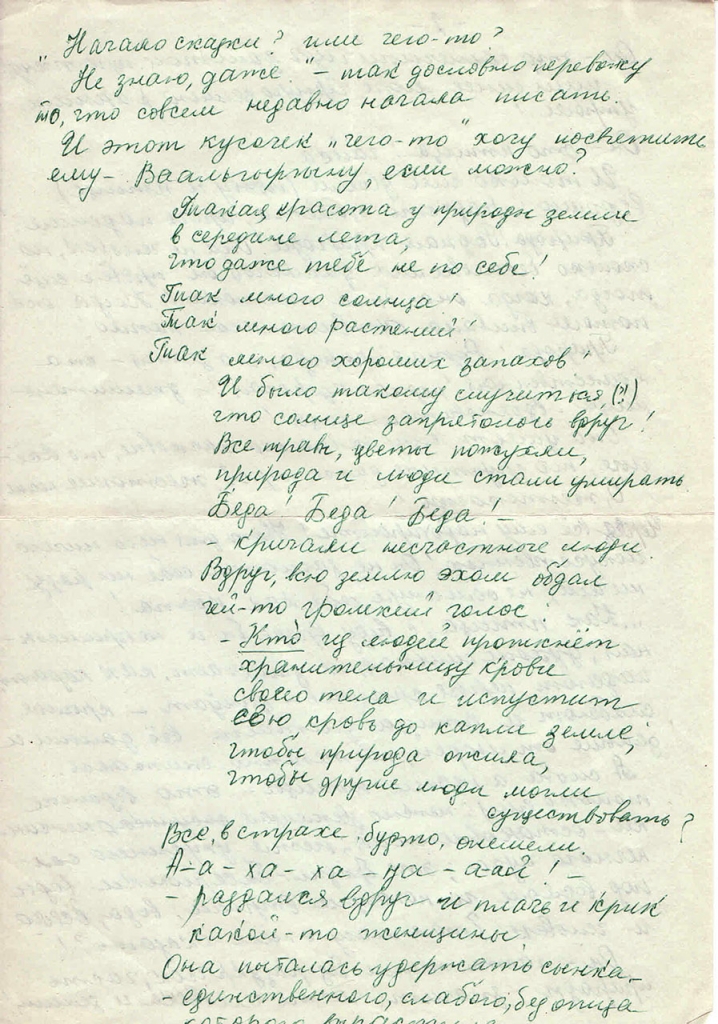 "Начало сказки? или чего-то?
Не знаю, даже" – так дословно перевожу
то, что совсем недавно начала писать.
И этот кусочек „чего-то" хочу посвятить
ему – Ваальгыргыну, если можно?
Такая красота у природы земле
в середине лета,
что даже тебе не по себе!
Так много солнца!
Так много растений!
Так много хороших запахов!
И было такому случиться, (?!)
что солнце запряталось вдруг!
Все травы, цветы пожухли,
природа и люди стали умирать.
Беда! Беда! Беда! –
кричали несчастные люди.
Вдруг, всю землю эхом обдал
чей-то громкий голос:
– Кто из людей проткнёт
хранительницу крови
своего тела и испустит
свою кровь до капли земле,
чтобы природа ожила,
чтобы другие люди могли
существовать?
Все, в страхе, будто, онемели.
А-а-ха-ха-на-а-ай! –
– раздался вдруг и плачь и крик
какой-то женщины.
Она пыталась удержать сынка –
– единственного, слабого, без отца
которого